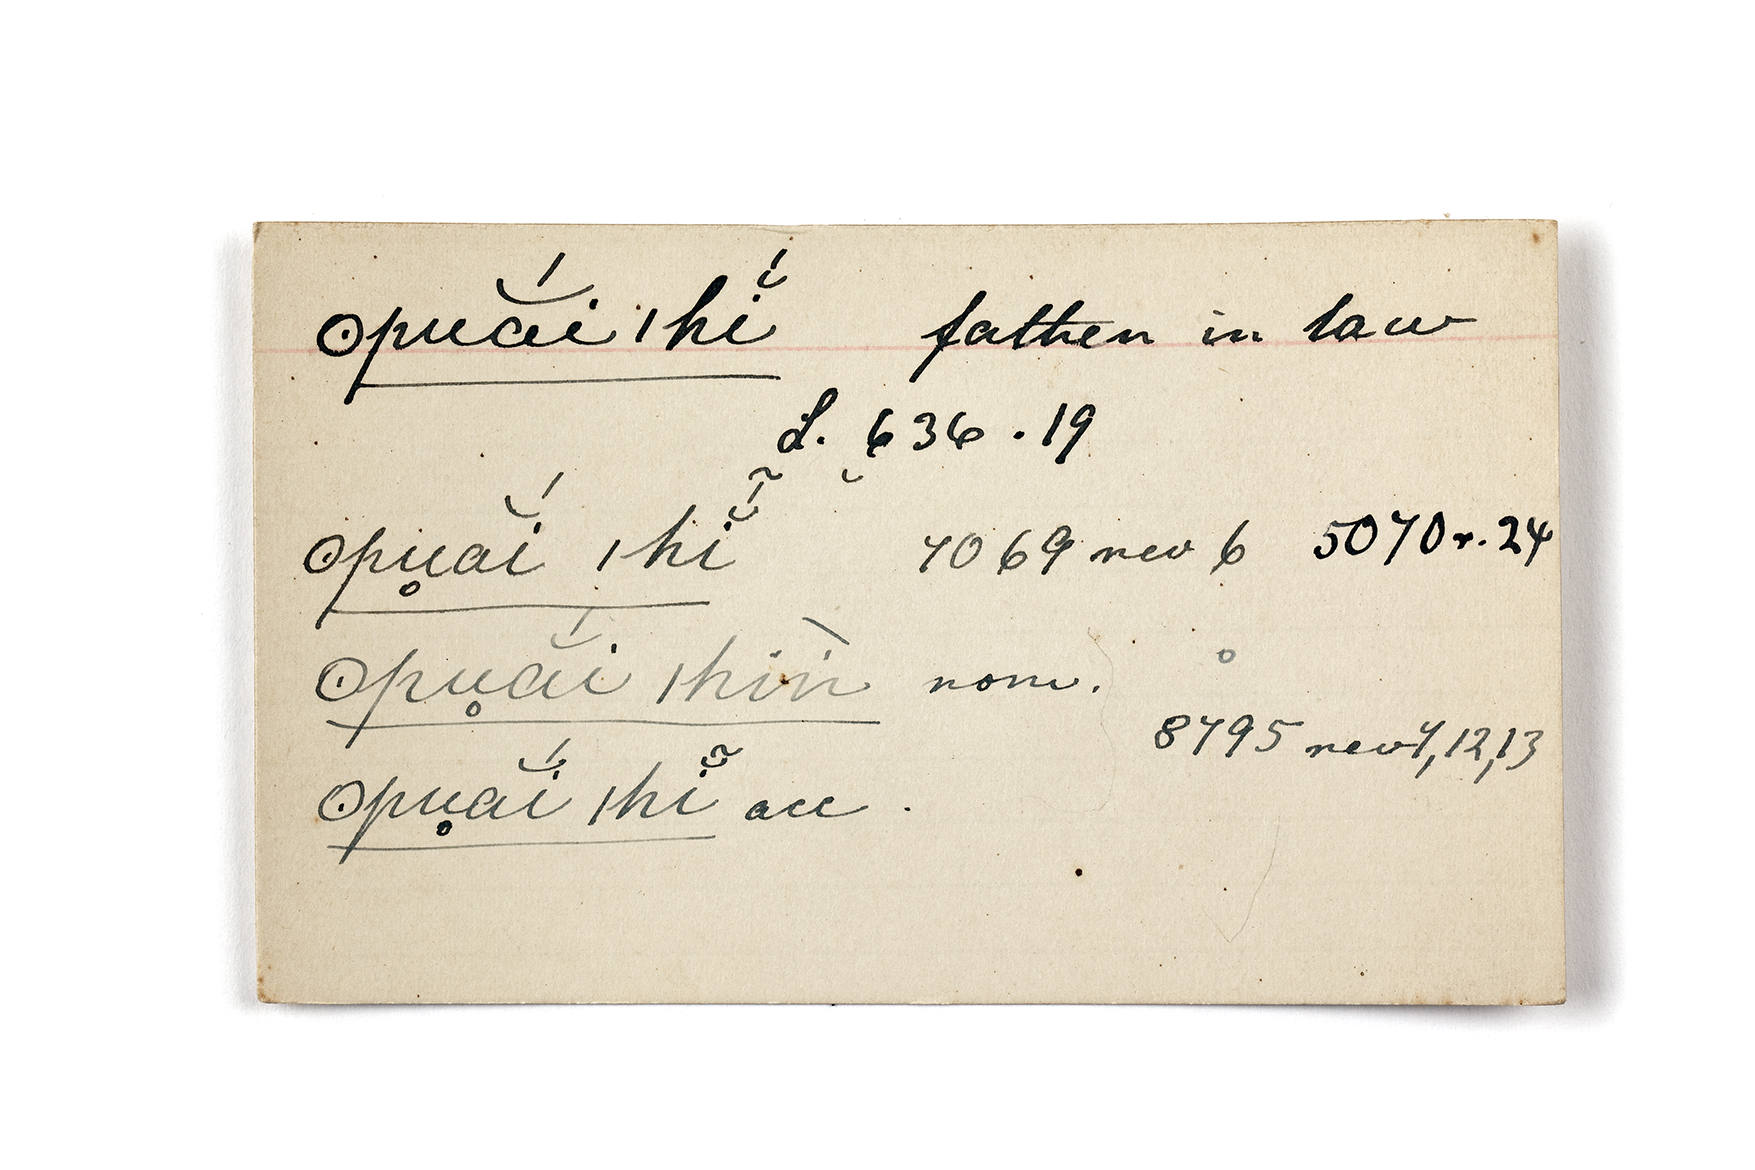 opuắi ıhĭ́ father in law
L. 636.19
opu̥ắi ıhĭ́̃ 4069 rev 6 5070 r. 24
opu̥ắi ıhiǹ nom.
8795 rev 4, 12, 13
opu̥ắi ıhĭ̃ acc.